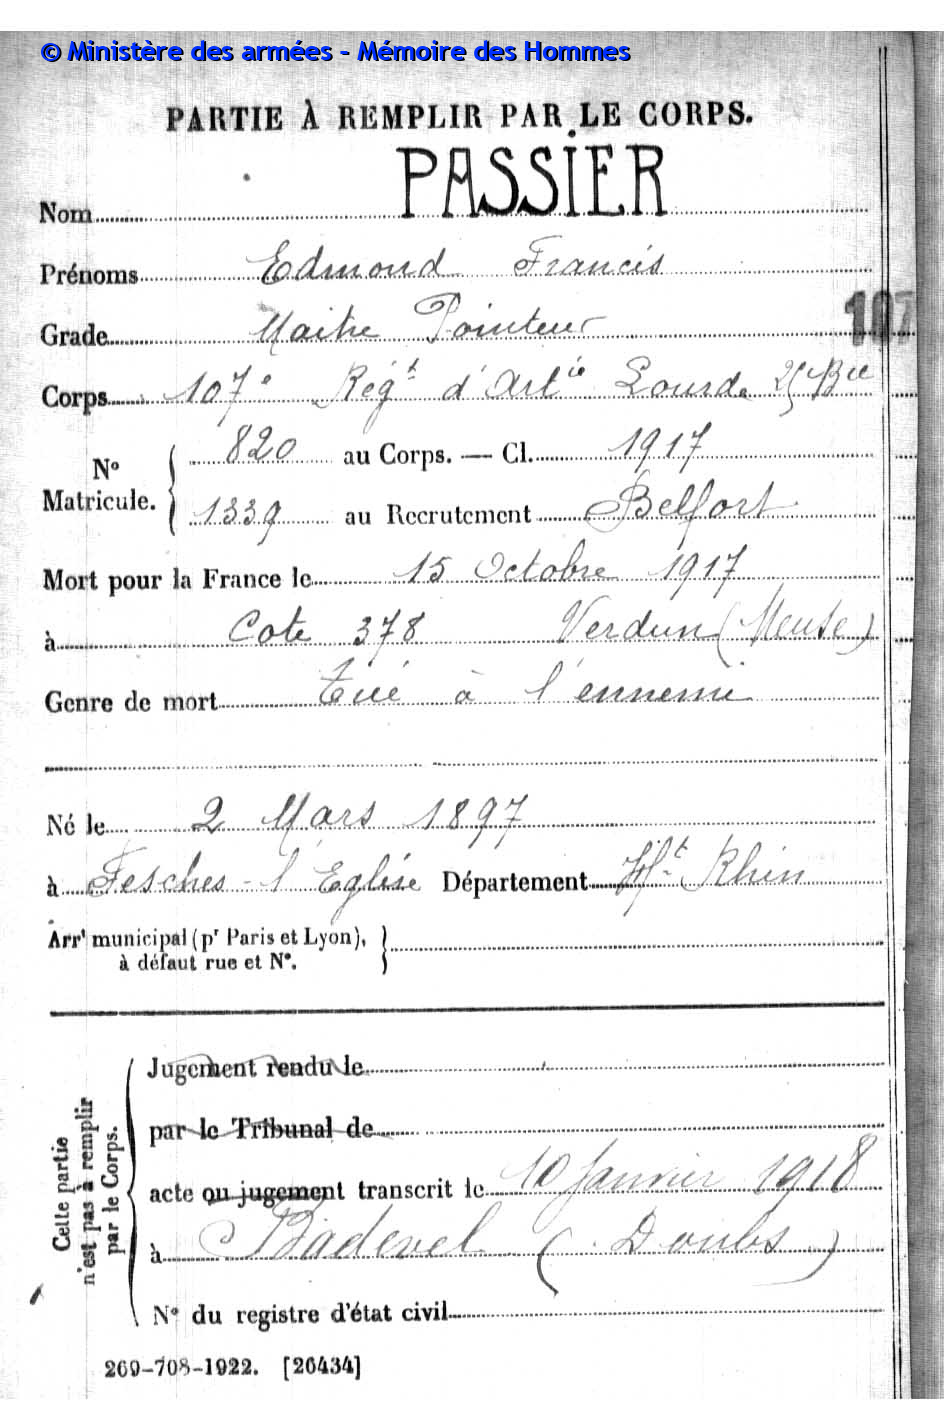 © Ministère des armées - Mémoire des Hommes
PARTIE À REMPLIR PAR LE CORPS.
Nom PASSIER
Prénoms Edmond Francis
Grade Maitre Pointeur
107
Corps 107e Régt d'Artie Lourde 25 Bie
No Matricule. 820 au Corps. — Cl. 1917
1339 au Recrutement Belfort
Mort pour la France le 15 Octobre 1917
à Cote 378 Verdun (Meuse)
Genre de mort Tué à l'ennemi
Né le 2 Mars 1897
à Fesches-l'Eglise Département Ht Rhin
Arrt municipal (pr Paris et Lyon),
à défaut rue et No.
Cette partie n'est pas à remplir par le Corps.
Jugement rendu le
par le Tribunal de
acte ou jugement transcrit le 10 Janvier 1918
à Badevel (Doubs)
No du registre d'état civil
269-708-1922. [26434]